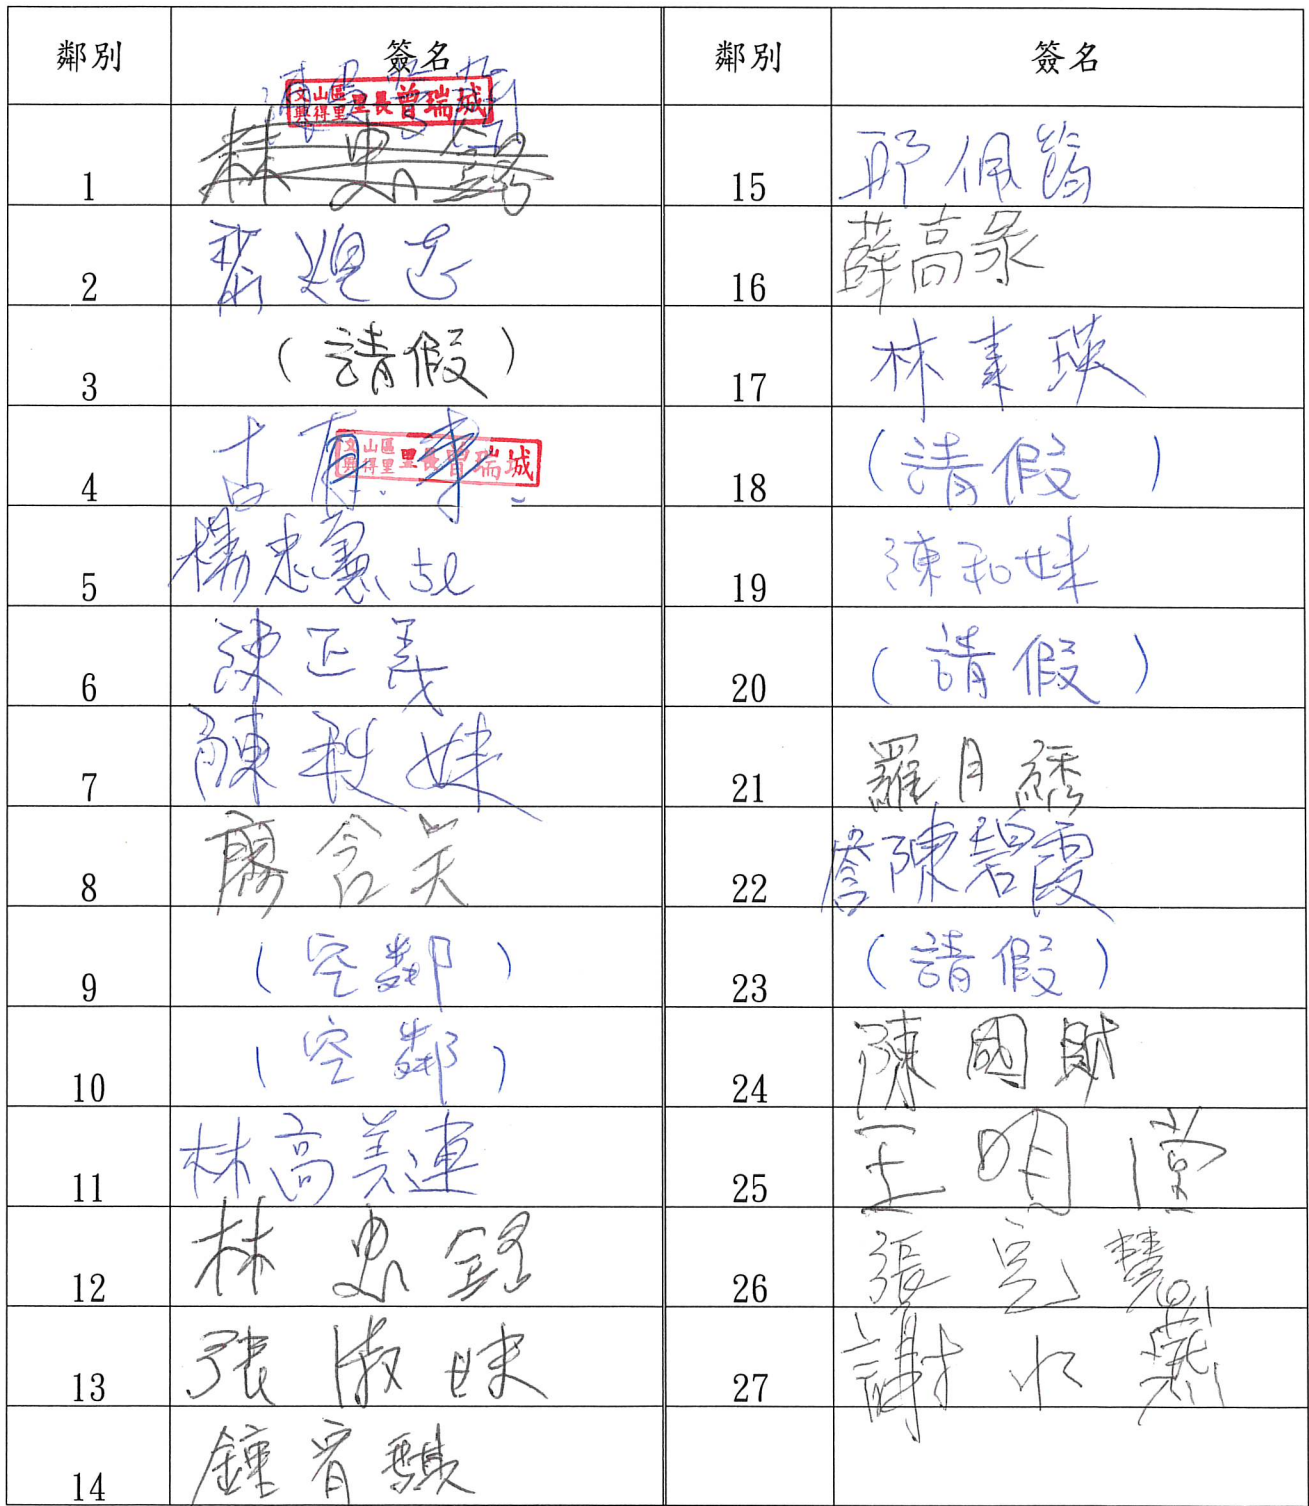 鄰別 簽名 鄰別 簽名
文山區
興得里 里長 曾瑞城
1 林忠銘 15 邢佩
2 16 薛高泉
3 (請假) 17 林素瑛
4 古有 18 (請假)
文山區
興得里 里長 曾瑞城
5 楊忠憲 19 陳和妹
6 陳正義 20 (請假)
7 陳秋妹 21 羅月繡
8 廖含笑 22 詹陳碧霞
9 (空鄰) 23 (請假)
10 (空鄰) 24 陳國財
11 林高美連 25 王明堂
12 林忠銘 26 張慧
13 張淑妹 27 謝水燕
14 鍾